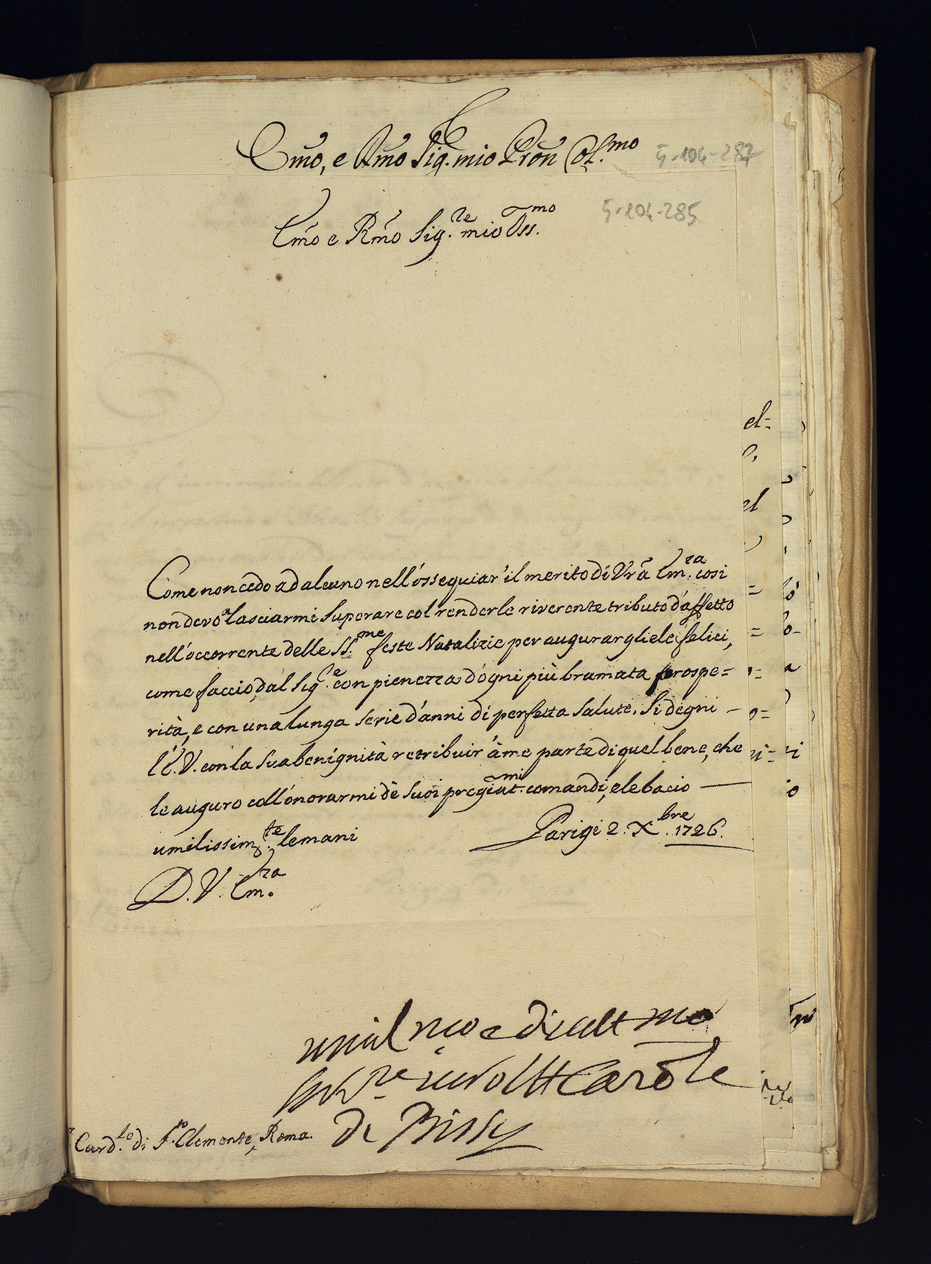 Em̃o, e Rm̃o Sig. mio Pron̄ Col.mo
5-104-287
5-104-285
Em̃o e Rm̃o Sig.re mio Oss.mo
Come non cedo ad alcuno nell'ossequiar' il merito di Vrã Em.za cosi
non devo lasciarmi superare col renderle riverente tributo d'affetto
nell'occorrente delle SS.me feste Natalizie per augurargliele felici,
come faccio, dal Sig.re con pienezza d'ogni più bramata prospe=
rità, e con una lunga serie d'anni di perfetta salute. Si degni —
l'E.V. con la sua benignità retribuir' à me parte di quel bene, che
le auguro coll'onorarmi dè suoi pregiat.mi comandi, e le bacio —
umilissim.te le mani
Parigi 2. Xbre. 1726.
D. V. Em.za
umil.mo e di
Ser.re
de Bissy
Card.le di S. Clemente, Roma.
el=
el